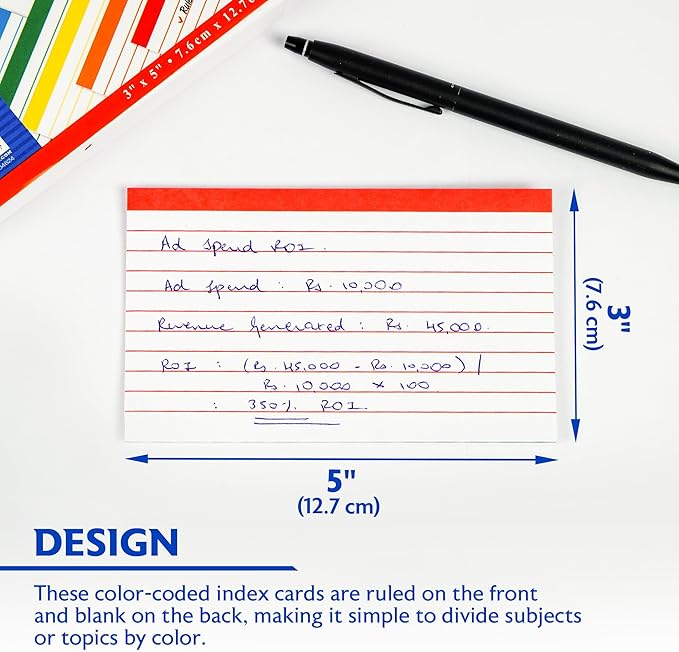 Rule
3" x 5" • 7.6cm x 12.7c
Ad Spend ROI.
Ad Spend : Rs. 10,000
Revenue Generated : Rs. 45,000.
ROI : (Rs. 45,000 - Rs. 10,000) /
Rs. 10,000 x 100
: 350% ROI.
3"
(7.6 cm)
5"
(12.7 cm)
DESIGN
These color-coded index cards are ruled on the front
and blank on the back, making it simple to divide subjects
or topics by color.